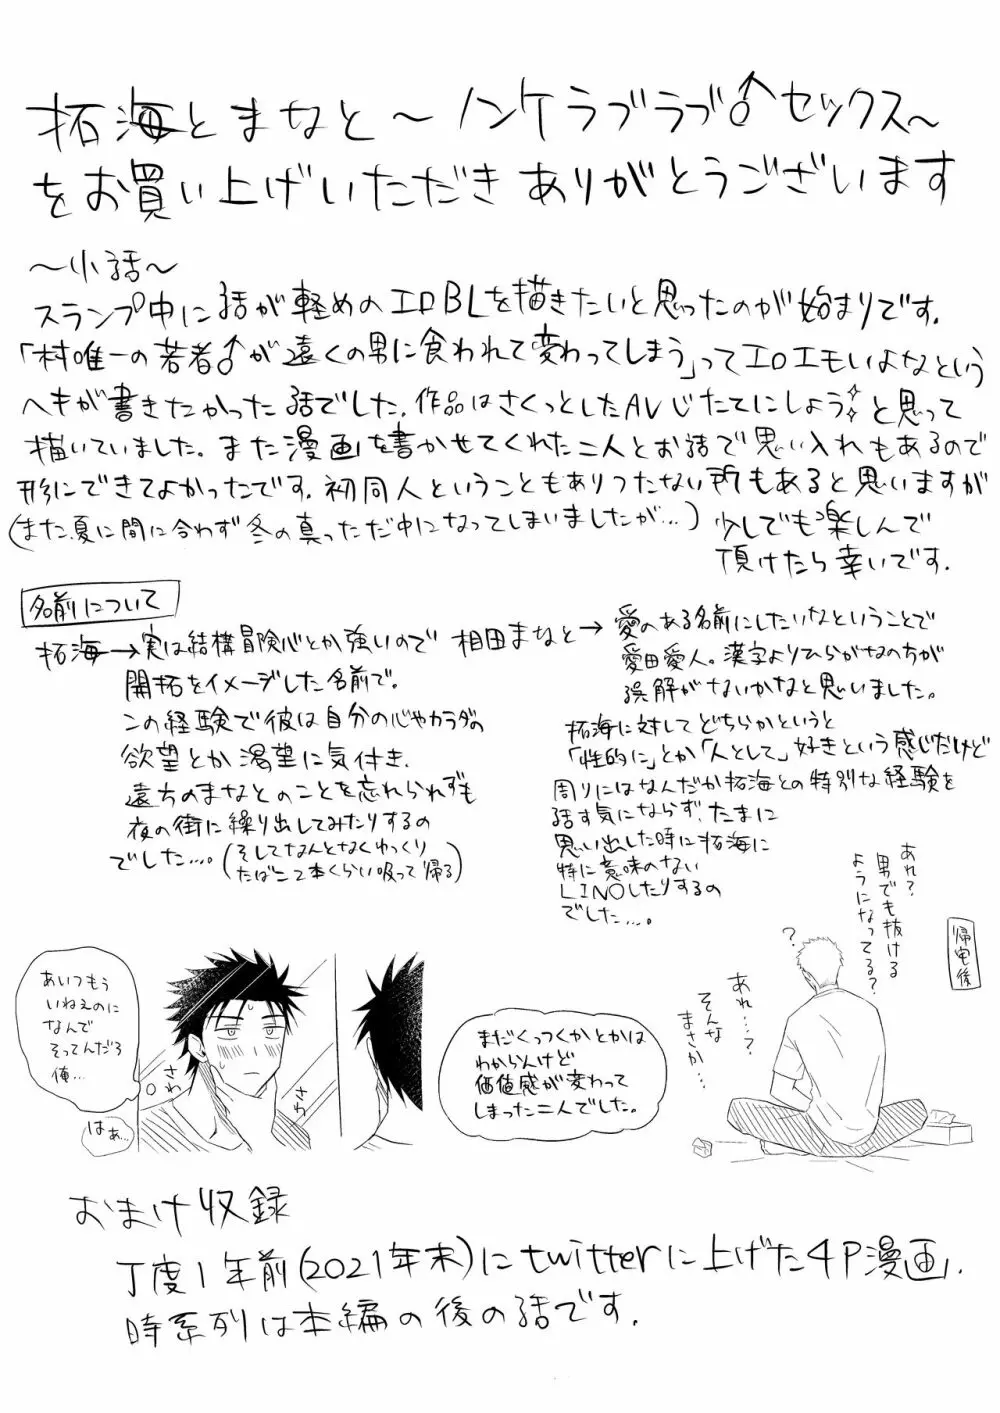 拓海とまなと～ノンケラブラブ♂セックス～
をお買い上げいただきありがとうございます
～小話～
スランプ中に話が軽めのエロBLを描きたいと思ったのが始まりです.
「村唯一の若者♂が遠くの男に食われて変わってしまう」ってエロエモいよなという
ヘキが書きたかった話でした. 作品はさくっとしたAVじたてにしよう と思って
描いていました。また漫画を書かせてくれた二人とお話で思い入れもあるので
形にできてよかったです. 初同人ということもありつたない所もあると思いますが
(また、夏に間に合わず冬の真っただ中になってしまいましたが…) 少しでも楽しんで
頂けたら幸いです.
名前について
拓海→実は結構冒険心とか強いので
開拓をイメージした名前で。
この経験で彼は自分の心やカラダの
欲望とか渇望に気付き、
遠方のまなとのことを忘れられずも
夜の街に繰り出してみたりするの
でした….。(そしてなんとなくゆっくり
たばこ2本くらい吸って帰る)
相田まなと→ 愛のある名前にしたいなということで
愛田愛人。漢字よりひらがなの方が
誤解がないかなと思いました。
拓海に対してどちらかというと
「性的に」とか「人として」好きという感じだけど
周りにはなんだか拓海との特別な経験を
話す気にならず、たまに
思い出した時に拓海に
特に意味のない
LINOしたりするの
でした….。
帰宅後
あれ?
男でも抜ける
ようになってる?
?
あれ…?
そんな
まさか…
あいつもう
いねぇのに
なんで
そってんだろ
俺…
はぁ…
さわ
さわ
まだくっつくかとかは
わからんけど
価値感が変わって
しまった二人でした。
おまけ収録
丁度1年前(2021年末)にtwitterに上げた4P漫画.
時系列は本編の後の話です.